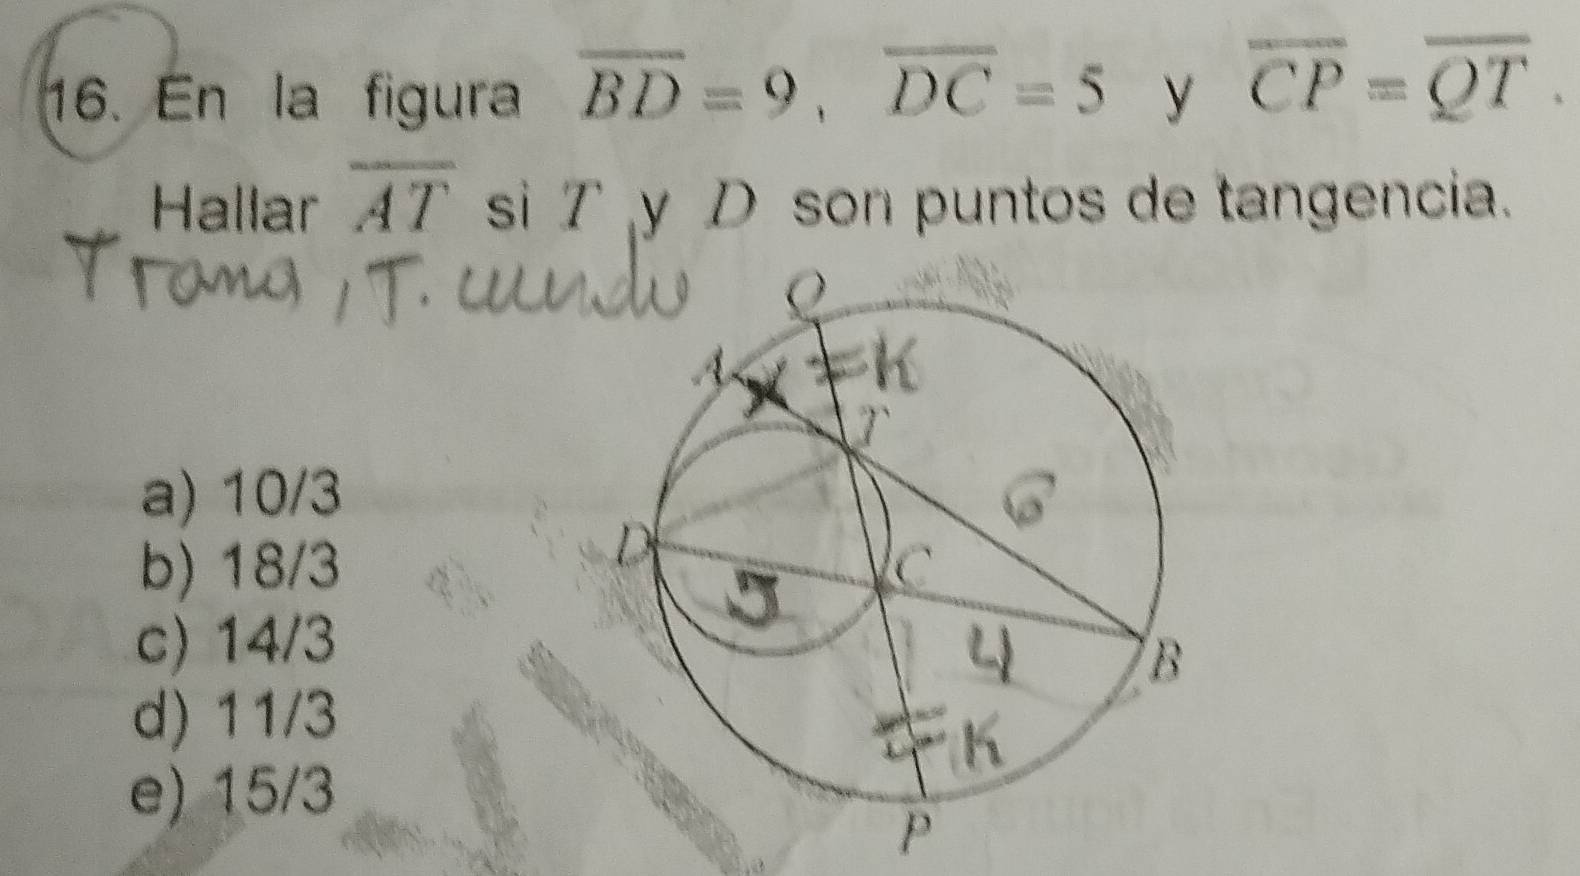 16. En la figura BD = 9, DC = 5 y CP = QT.
Hallar AT si T y D son puntos de tangencia.
Trama, T.
Q
A X = K
T
a) 10/3
6
b) 18/3
D C
5
c) 14/3
4 B
d) 11/3
= K
e) 15/3
P